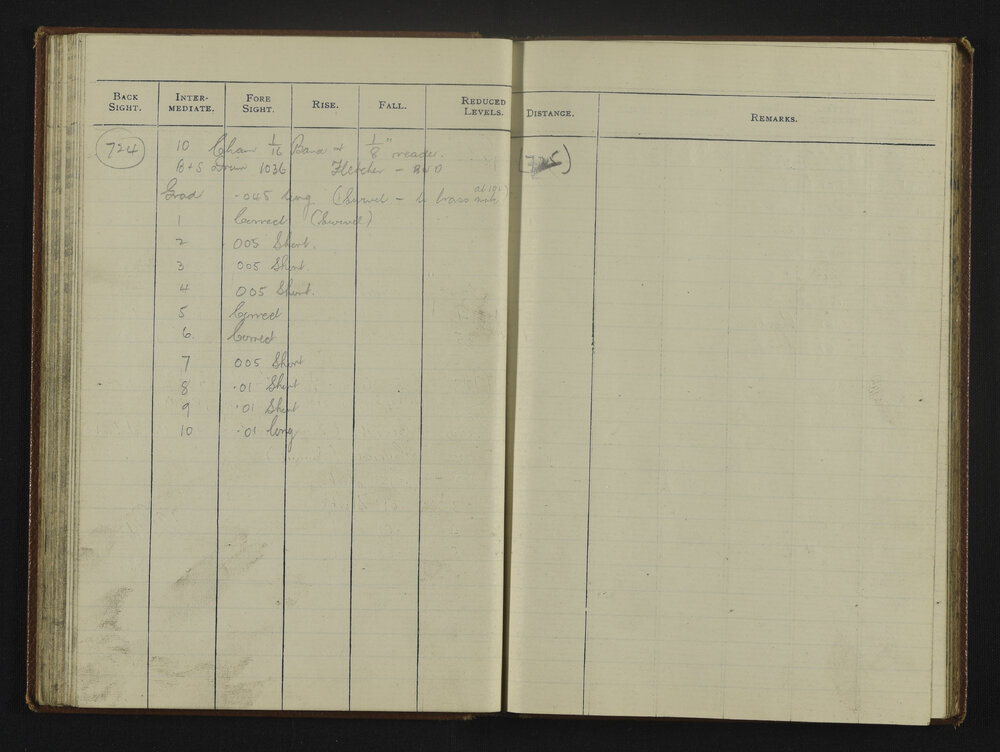 BACK SIGHT. INTER-MEDIATE. FORE SIGHT. RISE. FALL. REDUCED LEVELS. DISTANCE. REMARKS.
724 10 Chain 1/16 Band + 1/8" reader.
B+S Drum 1036 Fletcher - RWD (725)
Grad .045 long
1 Correct
2 005 Short.
3 005 Short.
4 005 Short.
5 Correct
6 Correct
7 005 Short
8 .01 Short
9 .01 Short
10 .01 long